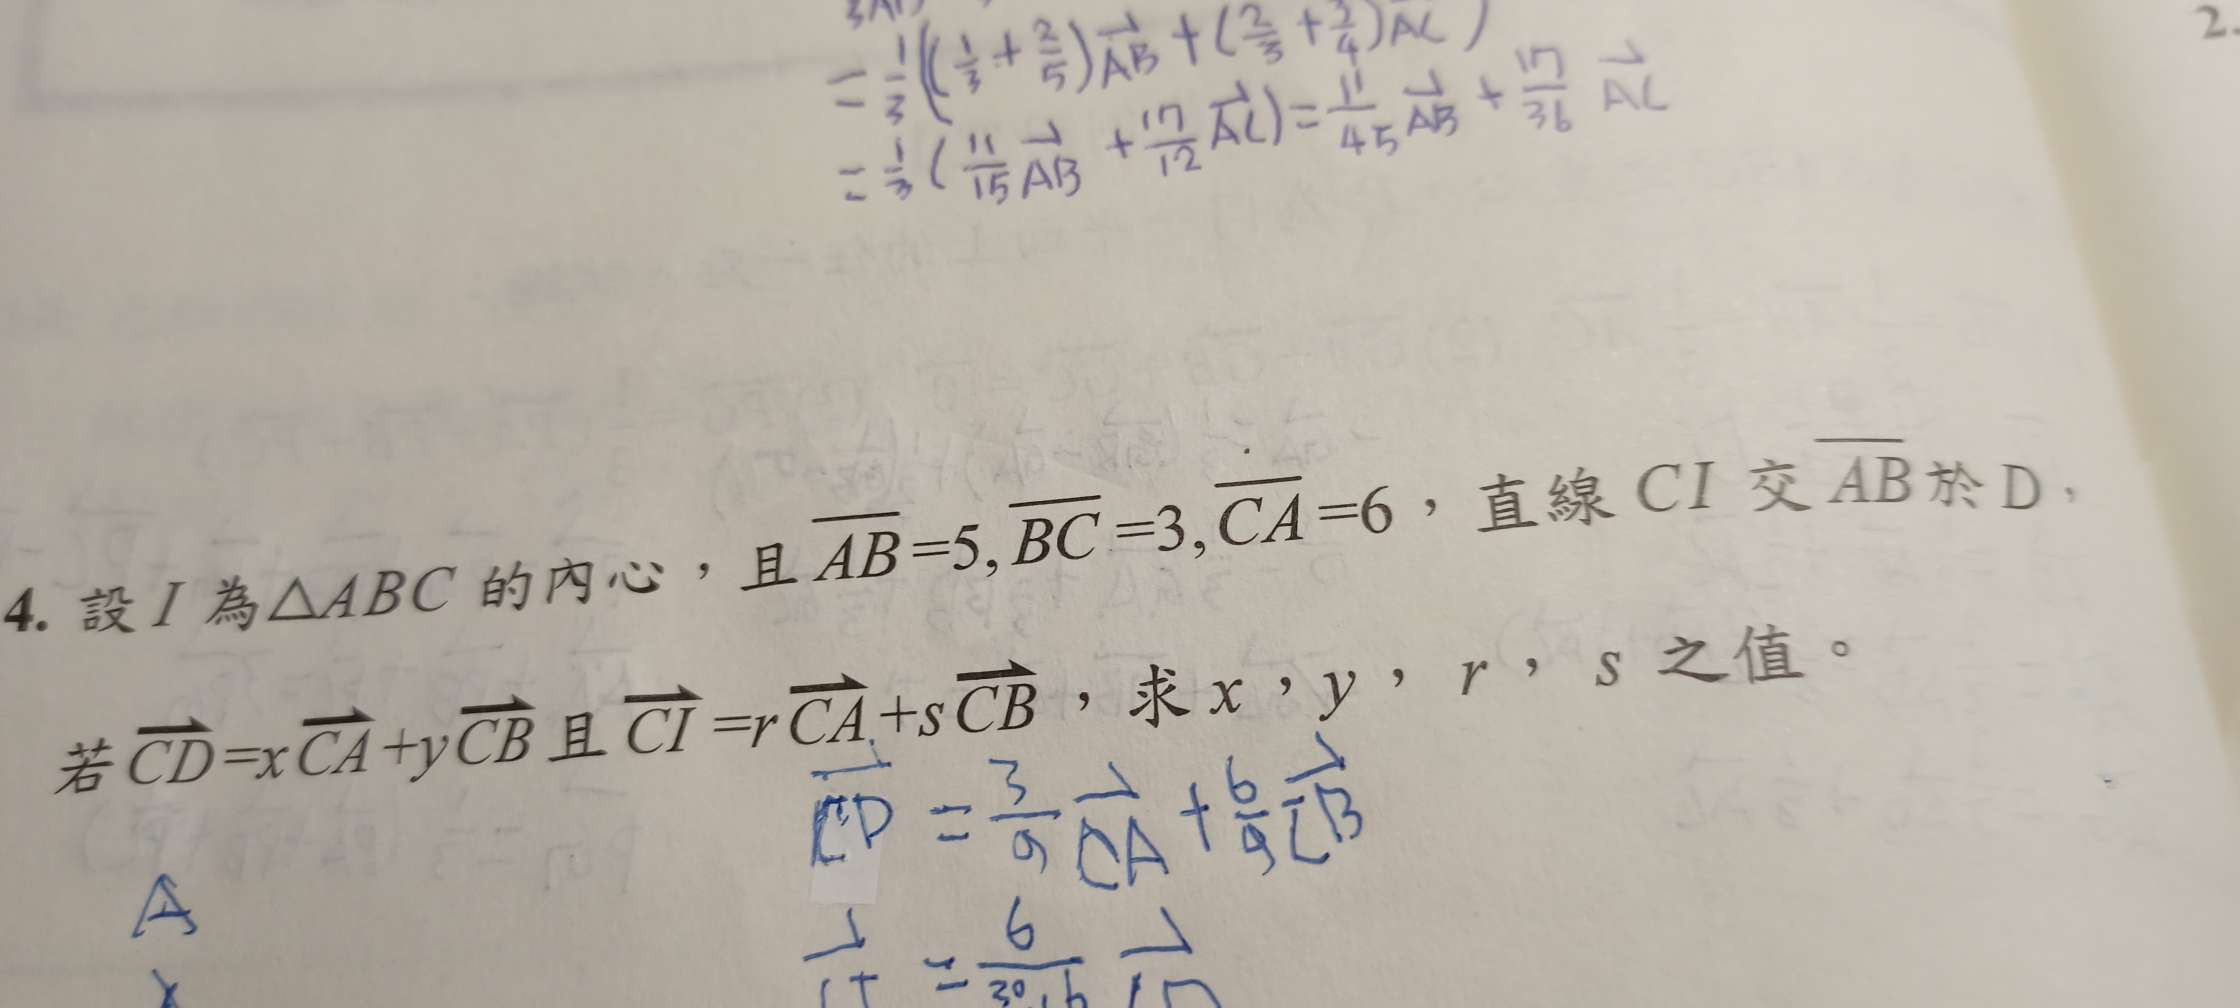 2.
= 1/3((1/3 + 2/5)AB + (2/3 + 3/4)AC)
= 1/3(11/15 AB + 17/12 AC) = 11/45 AB + 17/36 AC
4. 設 I 為△ABC 的內心，且 AB=5, BC=3, CA=6，直線 CI 交 AB 於 D，
若 CD=xCA+yCB 且 CI=rCA+sCB，求 x，y，r，s 之值。
CD = 3/9 CA + 6/9 CB
A
= 6